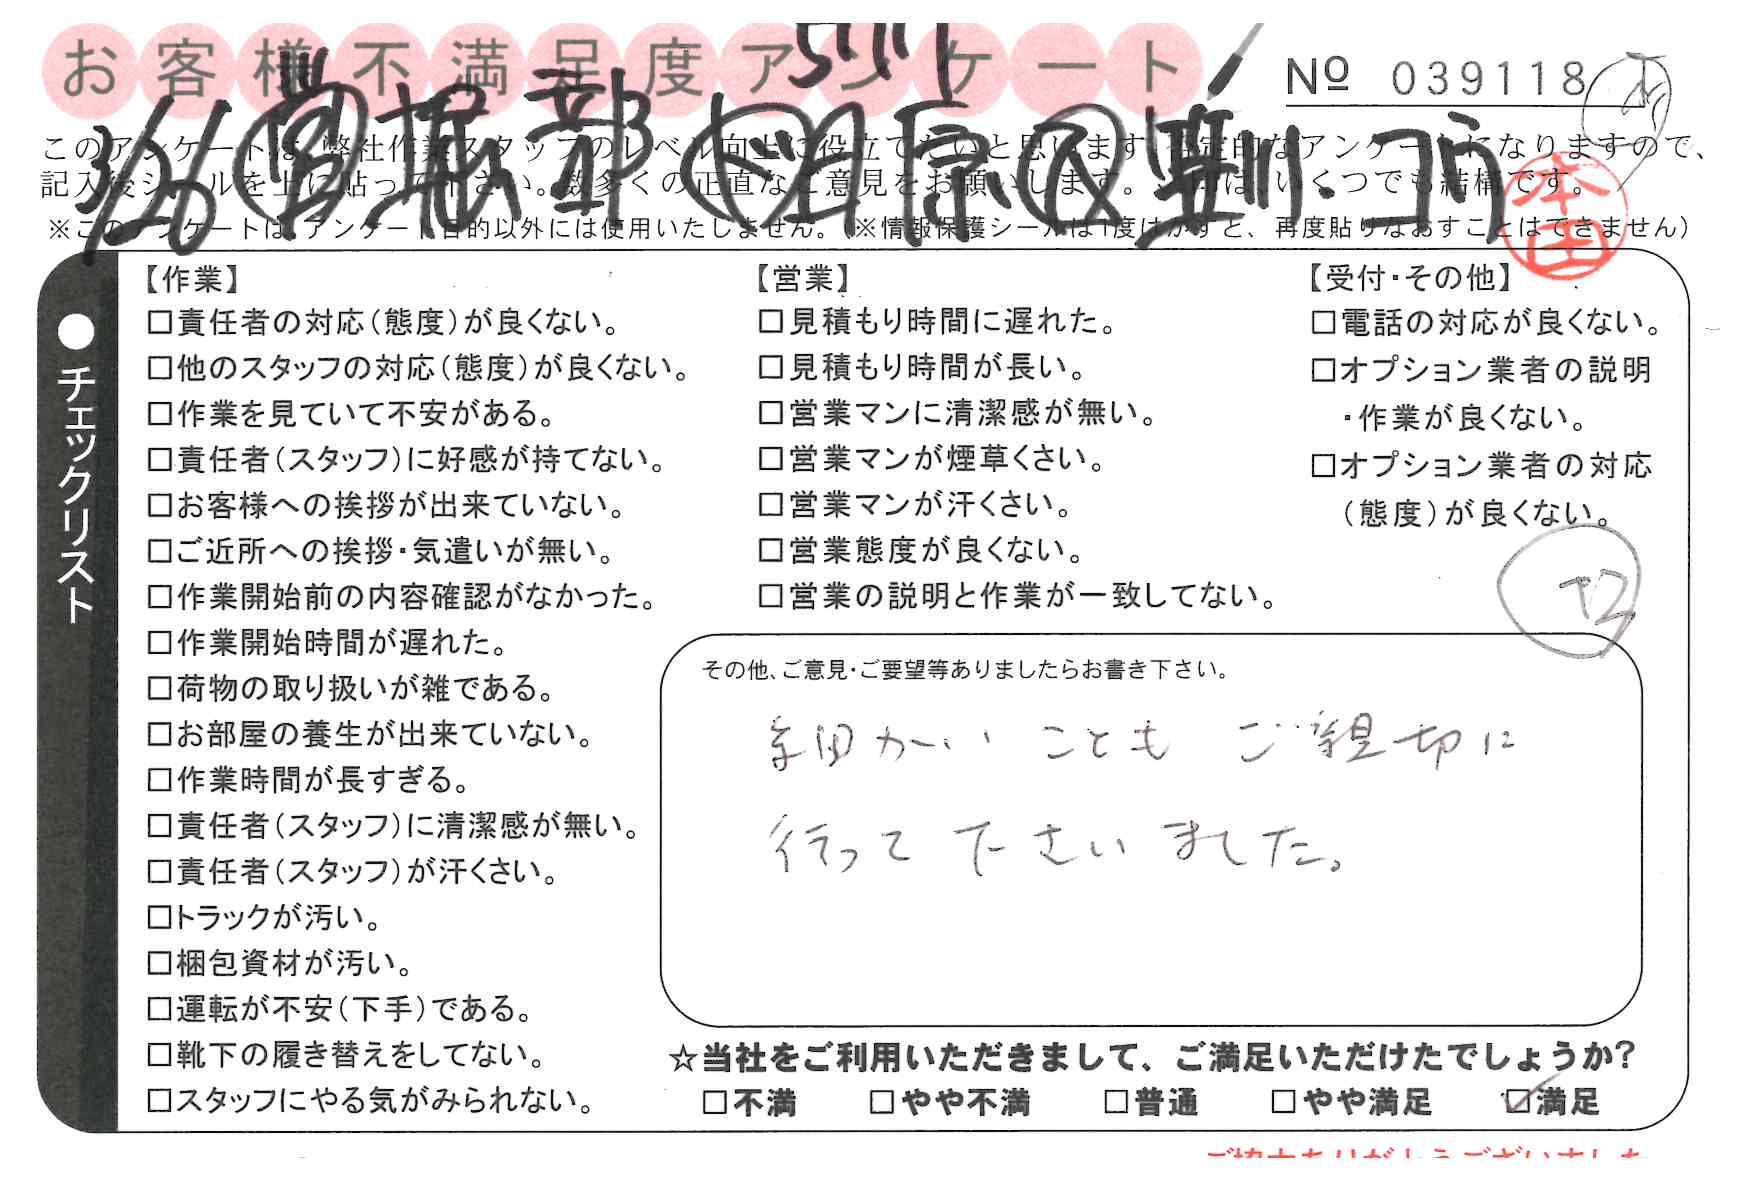 お客様不満足度アンケート
№ 039118
3/26 営 堀部 ド 石原 ス
このアンケートは、弊社作業スタッフのレベル向上に役立てたいと思います。否定的なアンケートになりますので、
記入後シールを上に貼って下さい。数多くの正直なご意見をお願いします。×印は、いくつでも結構です。
※このアンケートは、アンケート目的以外には使用いたしません。(※情報保護シールは1度はがすと、再度貼りなおすことはできません)
本田
●チェックリスト
【作業】
□責任者の対応(態度)が良くない。
□他のスタッフの対応(態度)が良くない。
□作業を見ていて不安がある。
□責任者(スタッフ)に好感が持てない。
□お客様への挨拶が出来ていない。
□ご近所への挨拶・気遣いが無い。
□作業開始前の内容確認がなかった。
□作業開始時間が遅れた。
□荷物の取り扱いが雑である。
□お部屋の養生が出来ていない。
□作業時間が長すぎる。
□責任者(スタッフ)に清潔感が無い。
□責任者(スタッフ)が汗くさい。
□トラックが汚い。
□梱包資材が汚い。
□運転が不安(下手)である。
□靴下の履き替えをしてない。
□スタッフにやる気がみられない。
【営業】
□見積もり時間に遅れた。
□見積もり時間が長い。
□営業マンに清潔感が無い。
□営業マンが煙草くさい。
□営業マンが汗くさい。
□営業態度が良くない。
□営業の説明と作業が一致してない。
【受付・その他】
□電話の対応が良くない。
□オプション業者の説明
・作業が良くない。
□オプション業者の対応
(態度)が良くない。
その他、ご意見・ご要望等ありましたらお書き下さい。
細かいことも ご親切に
行って下さいました。
☆当社をご利用いただきまして、ご満足いただけたでしょうか?
□不満 □やや不満 □普通 □やや満足 ☑満足
ご協力ありがとうございました